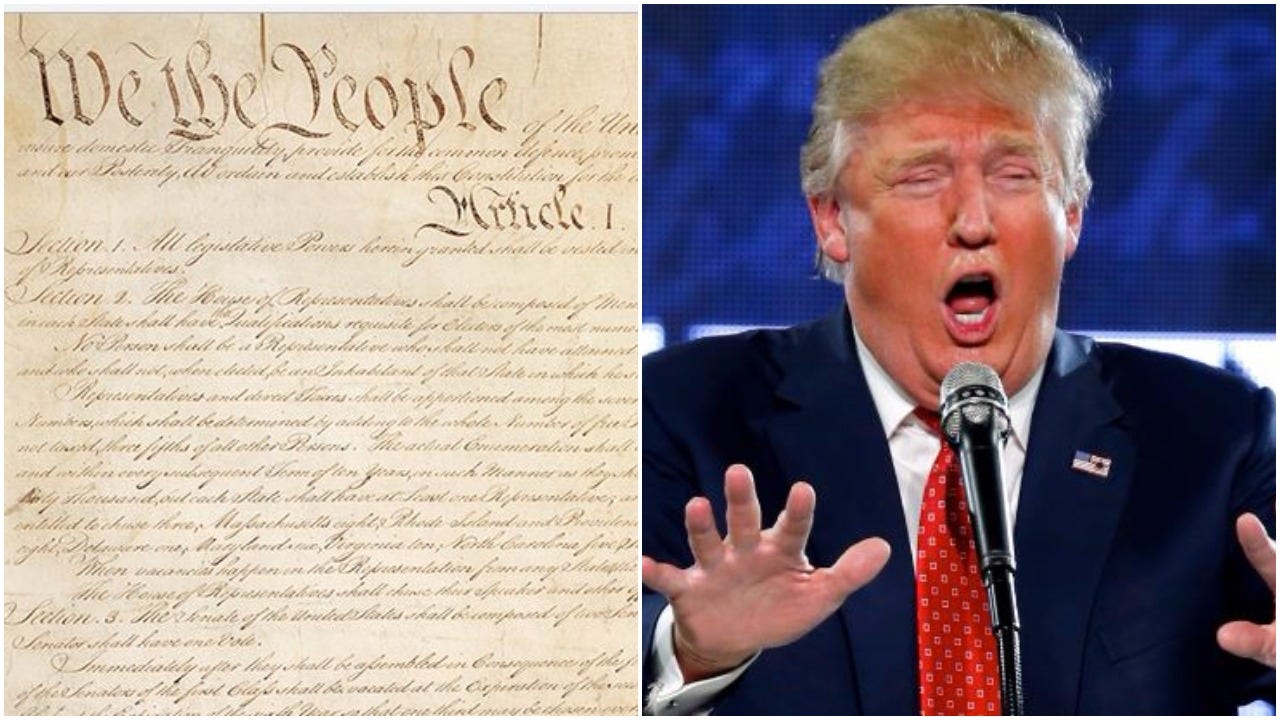 We the People of the Un
insure domestic Tranquility, provide for the common defence, prom
and our Posterity, do ordain and establish this Constitution for the U
Article. I.
Section. 1. All legislative Powers herein granted shall be vested in
of Representatives.
Section. 2. The House of Representatives shall be composed of Mem
in each State shall have Qualifications requisite for Electors of the most numer
No Person shall be a Representative who shall not have attained
and who shall not, when elected, be an Inhabitant of that State in which he s
Representatives and direct Taxes shall be apportioned among the sever
Numbers, which shall be determined by adding to the whole Number of free
not taxed, three fifths of all other Persons. The actual Enumeration shall
and within every subsequent Term of ten Years, in such Manner as they sh
thirty Thousand, but each State shall have at Least one Representative; an
entitled to chuse three, Massachusetts eight, Rhode Island and Providen
eight, Delaware one, Maryland six, Virginia ten, North Carolina five,
When vacancies happen in the Representation from any State, the
The House of Representatives shall chuse their Speaker and other
Section. 3. The Senate of the United States shall be composed of two Sen
Senator shall have one Vote.
Immediately after they shall be assembled in Consequence of the f
of the Senators of the first Class shall be vacated at the Expiration of the